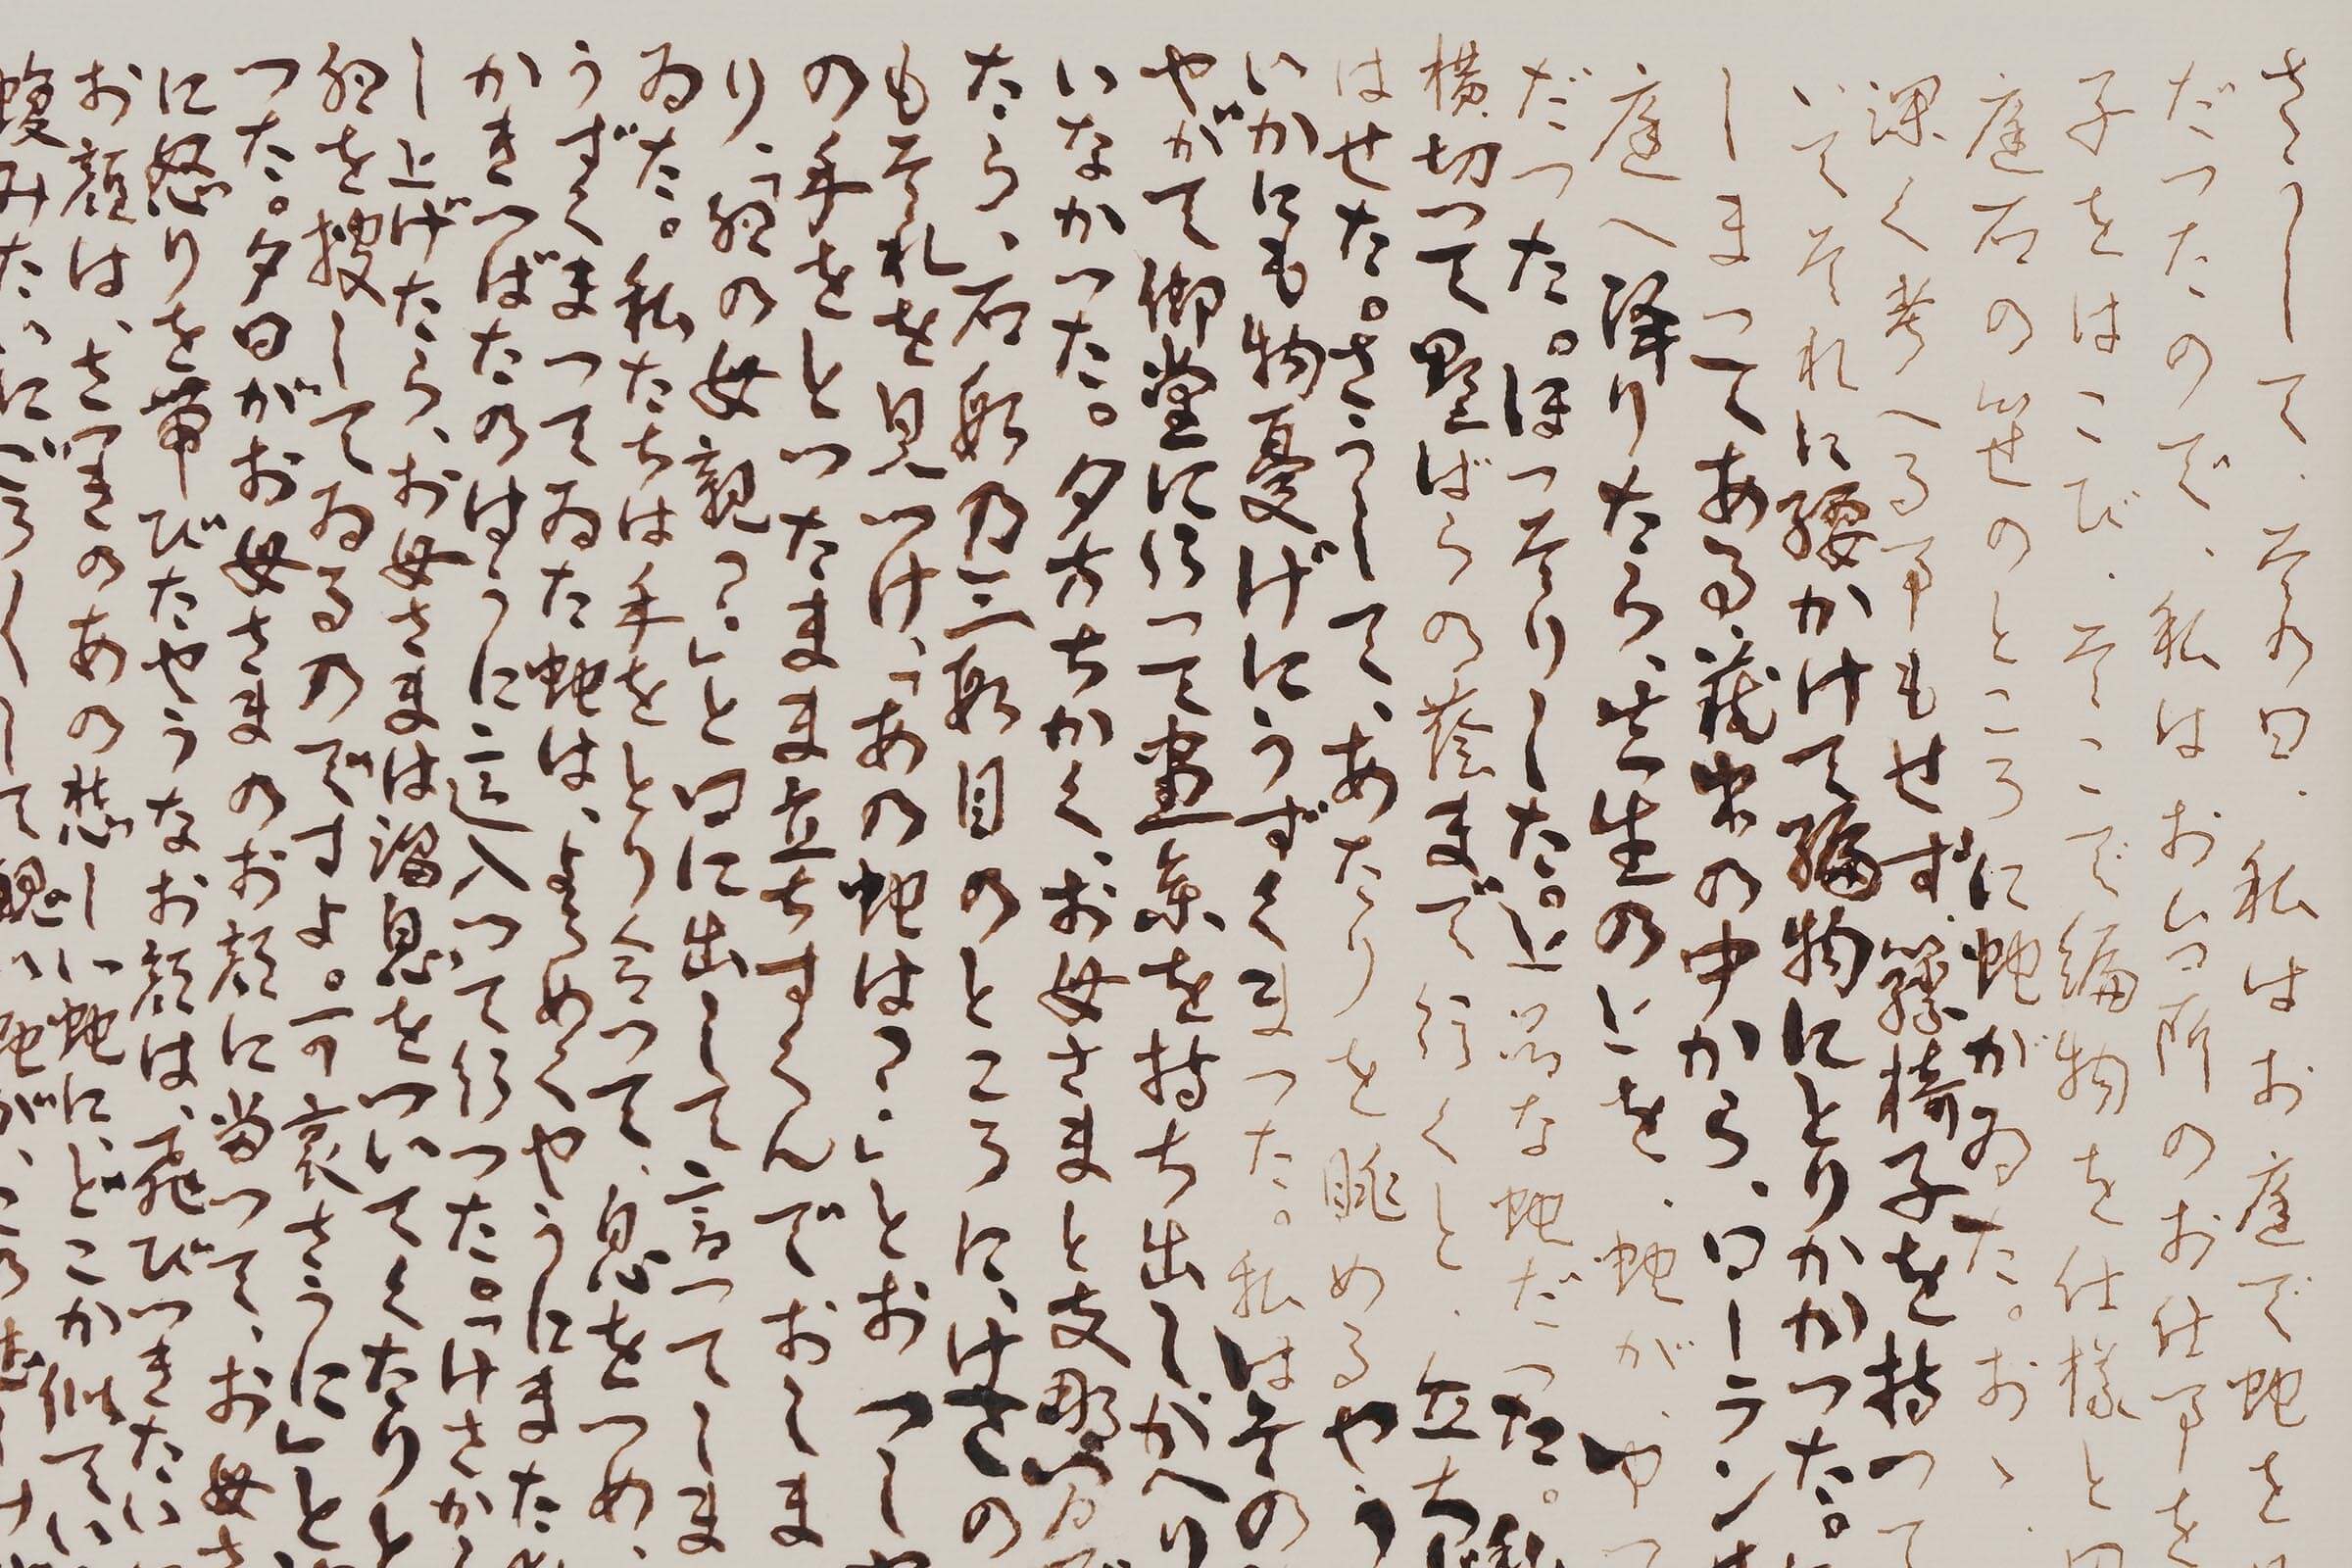 さうして、その日、私はお庭で蛇を
だつたので、私はお台所のお仕事を
子をはこび、そこで編物を仕様と
庭石の笹のところに蛇がゐた。おゝ、
深く考へる事もせず、籐椅子を持つて
いてそれに腰かけて編物にとりかかつた。
しまつてある蔵書の中から、ローラン
庭へ降りたら、芝生の上を、蛇が、ゆつ
だつた。ほつそりした、上品な蛇だつた。私
横切つて野ばらの蔭まで行くと、立ち
はせた。さうして、あたりを眺めるやう
いかにも物憂げにうずくまつた。私はその
やがて御堂に行つて画集を持ち出しかへり
いなかつた。夕方ちかく、お母さまと支那間で
たら、石段の三段目のところに、けさの
もそれを見つけ、「あの蛇は?」とおつしや
の手をとつたまま立ちすくんでおしま
り、「卵の母親?」と口に出して言つてしま
ゐた。私たちは手をとり合つて、息をつめ、
うずくまつてゐた蛇は、よろめくやうにまた
かきつばたのはうに這入つて行つた。「けさか
し上げたら、お母さまは溜息をついてくたりと
卵を捜してゐるのですよ。可哀さうに」と
つた。夕日がお母さまのお顔に当つて、お母さ
に怒りを帯びたやうなお顔は、飛びつきたい
お顔は、さつきのあの悲しい蛇に、どこか似てい
蝮みたいにごろごろして醜い蛇が、この